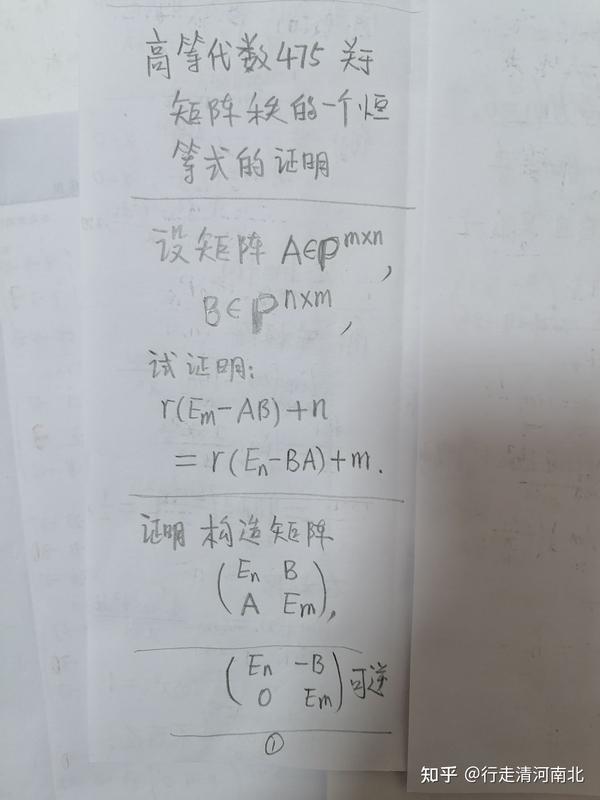 高等代数475 关于
矩阵秩的一个恒
等式的证明
设矩阵 A∈P^{m×n},
B∈P^{n×m},
试证明:
r(E_m-AB)+n
=r(E_n-BA)+m.
证明 构造矩阵
(E_n B
A E_m),
(E_n -B
0 E_m)可逆
①
知乎 @行走清河南北